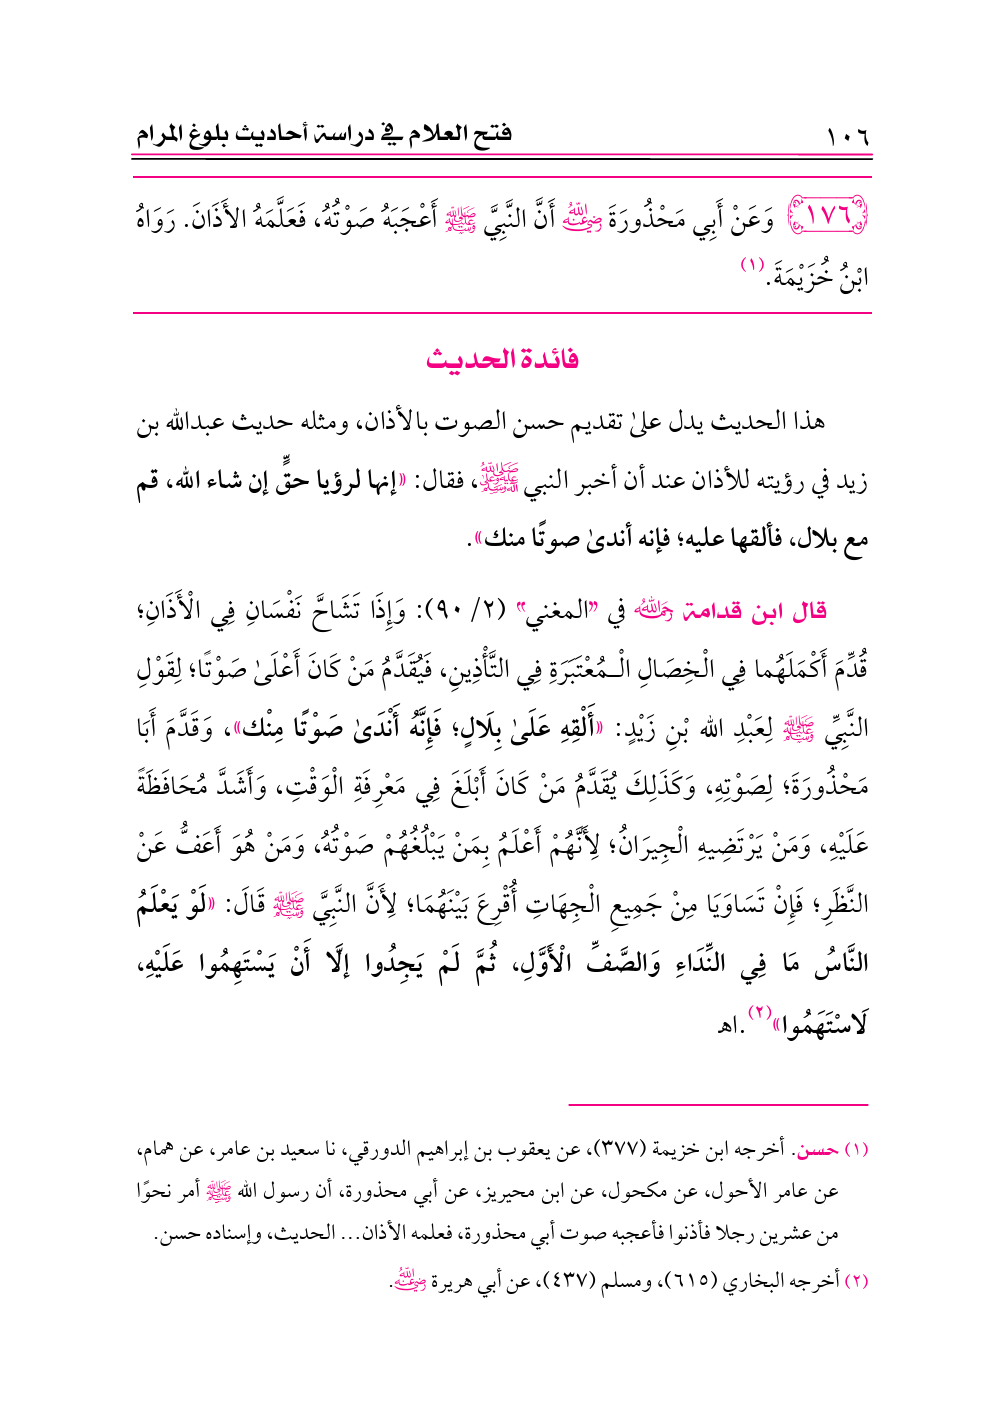 ١٠٦ فتح العلام في دراسة أحاديث بلوغ المرام
١٧٦ وَعَنْ أَبِي مَحْذُورَةَ رضي الله عنه أَنَّ النَّبِيَّ ﷺ أَعْجَبَهُ صَوْتُهُ، فَعَلَّمَهُ الأَذَانَ. رَوَاهُ
ابْنُ خُزَيْمَةَ.(١)
فائدة الحديث
هذا الحديث يدل علىٰ تقديم حسن الصوت بالأذان، ومثله حديث عبدالله بن
زيد في رؤيته للأذان عند أن أخبر النبي ﷺ، فقال: «إنها لرؤيا حقٌّ إن شاء الله، قم
مع بلال، فألقها عليه؛ فإنه أندىٰ صوتًا منك».
قال ابن قدامة رحمه الله في "المغني" (٢/ ٩٠): وَإِذَا تَشَاحَّ نَفْسَانِ فِي الْأَذَانِ؛
قُدِّمَ أَكْمَلَهُما فِي الْخِصَالِ الْـمُعْتَبَرَةِ فِي التَّأْذِينِ، فَيُقَدَّمُ مَنْ كَانَ أَعْلَىٰ صَوْتًا؛ لِقَوْلِ
النَّبِيِّ ﷺ لِعَبْدِ الله بْنِ زَيْدٍ: «أَلْقِهِ عَلَىٰ بِلَالٍ؛ فَإِنَّهُ أَنْدَىٰ صَوْتًا مِنْك»، وَقَدَّمَ أَبَا
مَحْذُورَةَ؛ لِصَوْتِهِ، وَكَذَلِكَ يُقَدَّمُ مَنْ كَانَ أَبْلَغَ فِي مَعْرِفَةِ الْوَقْتِ، وَأَشَدَّ مُحَافَظَةً
عَلَيْهِ، وَمَنْ يَرْتَضِيهِ الْجِيرَانُ؛ لِأَنَّهُمْ أَعْلَمُ بِمَنْ يَبْلُغُهُمْ صَوْتُهُ، وَمَنْ هُوَ أَعَفُّ عَنْ
النَّظَرِ؛ فَإِنْ تَسَاوَيَا مِنْ جَمِيعِ الْجِهَاتِ أُقْرِعَ بَيْنَهُمَا؛ لِأَنَّ النَّبِيَّ ﷺ قَالَ: «لَوْ يَعْلَمُ
النَّاسُ مَا فِي النِّدَاءِ وَالصَّفِّ الْأَوَّلِ، ثُمَّ لَمْ يَجِدُوا إلَّا أَنْ يَسْتَهِمُوا عَلَيْهِ،
لَاسْتَهَمُوا»(٢).اهـ
(١) حسن. أخرجه ابن خزيمة (٣٧٧)، عن يعقوب بن إبراهيم الدورقي، نا سعيد بن عامر، عن همام،
عن عامر الأحول، عن مكحول، عن ابن محيريز، عن أبي محذورة، أن رسول الله ﷺ أمر نحوًا
من عشرين رجلا فأذنوا فأعجبه صوت أبي محذورة، فعلمه الأذان... الحديث، وإسناده حسن.
(٢) أخرجه البخاري (٦١٥)، ومسلم (٤٣٧)، عن أبي هريرة رضي الله عنه.